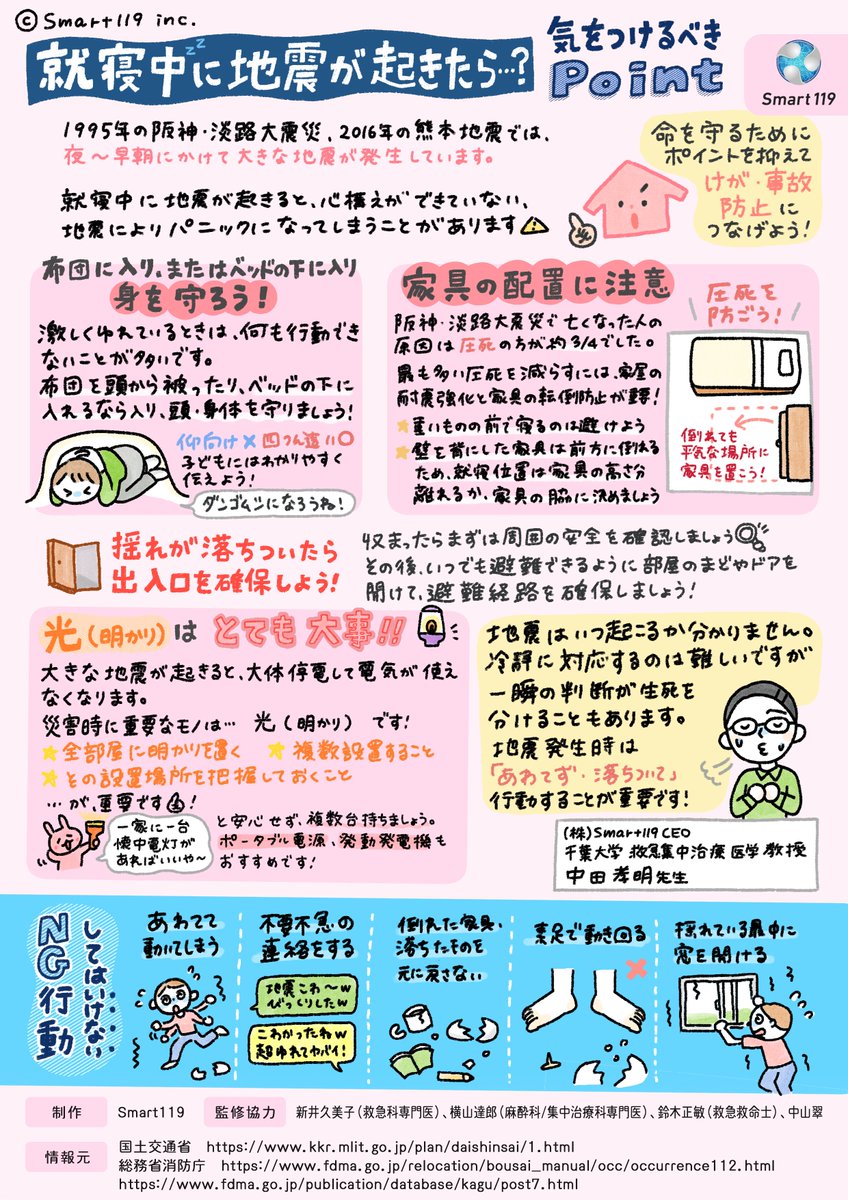 ©Smart119 inc.
就寝中に地震が起きたら…?
zz
気をつけるべき
Point
Smart119
1995年の阪神・淡路大震災、2016年の熊本地震では、
夜〜早朝にかけて大きな地震が発生しています。
就寝中に地震が起きると、心構えができていない、
地震によりパニックになってしまうことがあります⚠
命を守るために
ポイントを抑えて
けが・事故
防止に
つなげよう!
布団に入り、またはベッドの下に入り
身を守ろう!
激しくゆれているときは、何も行動でき
ないことが多いです。
布団を頭から被ったり、ベッドの下に
入れるなら入り、頭・身体を守りましょう!
仰向け× 四つん這い○
子どもにはわかりやすく
伝えよう!
ダンゴムシになろうね!
家具の配置に注意
阪神・淡路大震災で亡くなった人の
原因は圧死の方が約3/4でした。
最も多い圧死を減らすには、家屋の
耐震強化と家具の転倒防止が重要!
★重いものの前で寝るのは避けよう
★壁を背にした家具は前方に倒れる
ため、就寝位置は家具の高さ分
離れるか、家具の脇に決めましょう
圧死を
防ごう!
倒れても
平気な場所に
家具を置こう!
揺れが落ちついたら
出入口を確保しよう!
収まったらまずは周囲の安全を確認しましょう
その後、いつでも避難できるように部屋のまどやドアを
開けて、避難経路を確保しましょう!
光(明かり)は とても大事!!
大きな地震が起きると、大体停電して電気が使え
なくなります。
災害時に重要なモノは… 光(明かり)です!
★全部屋に明かりを置く ★複数設置すること
★その設置場所を把握しておくこと
…が、重要です!
一家に一台
懐中電灯が
あればいいや〜
と安心せず、複数台持ちましょう。
ポータブル電源、発動発電機も
おすすめです!
地震はいつ起こるか分かりません。
冷静に対応するのは難しいですが
一瞬の判断が生死を
分けることもあります。
地震発生時は
「あわてず・落ちついて」
行動することが重要です!
(株)Smart119 CEO
千葉大学 救急集中治療医学教授
中田孝明先生
してはいけない
NG行動
あわてて
動いてしまう
不要不急の
連絡をする
地震こわ〜w
びっくりしたw
こわかったねw
超ゆれてヤバイ!
倒れた家具、
落ちたものを
元に戻さない
素足で動き回る
揺れている最中に
窓を開ける
制作 Smart119 監修協力 新井久美子(救急科専門医)、横山達郎(麻酔科/集中治療科専門医)、鈴木正敏(救急救命士)、中山翠
情報元 国土交通省 https://www.kkr.mlit.go.jp/plan/daishinsai/1.html
総務省消防庁 https://www.fdma.go.jp/relocation/bousai_manual/occ/occurrence112.html
https://www.fdma.go.jp/publication/database/kagu/post7.html